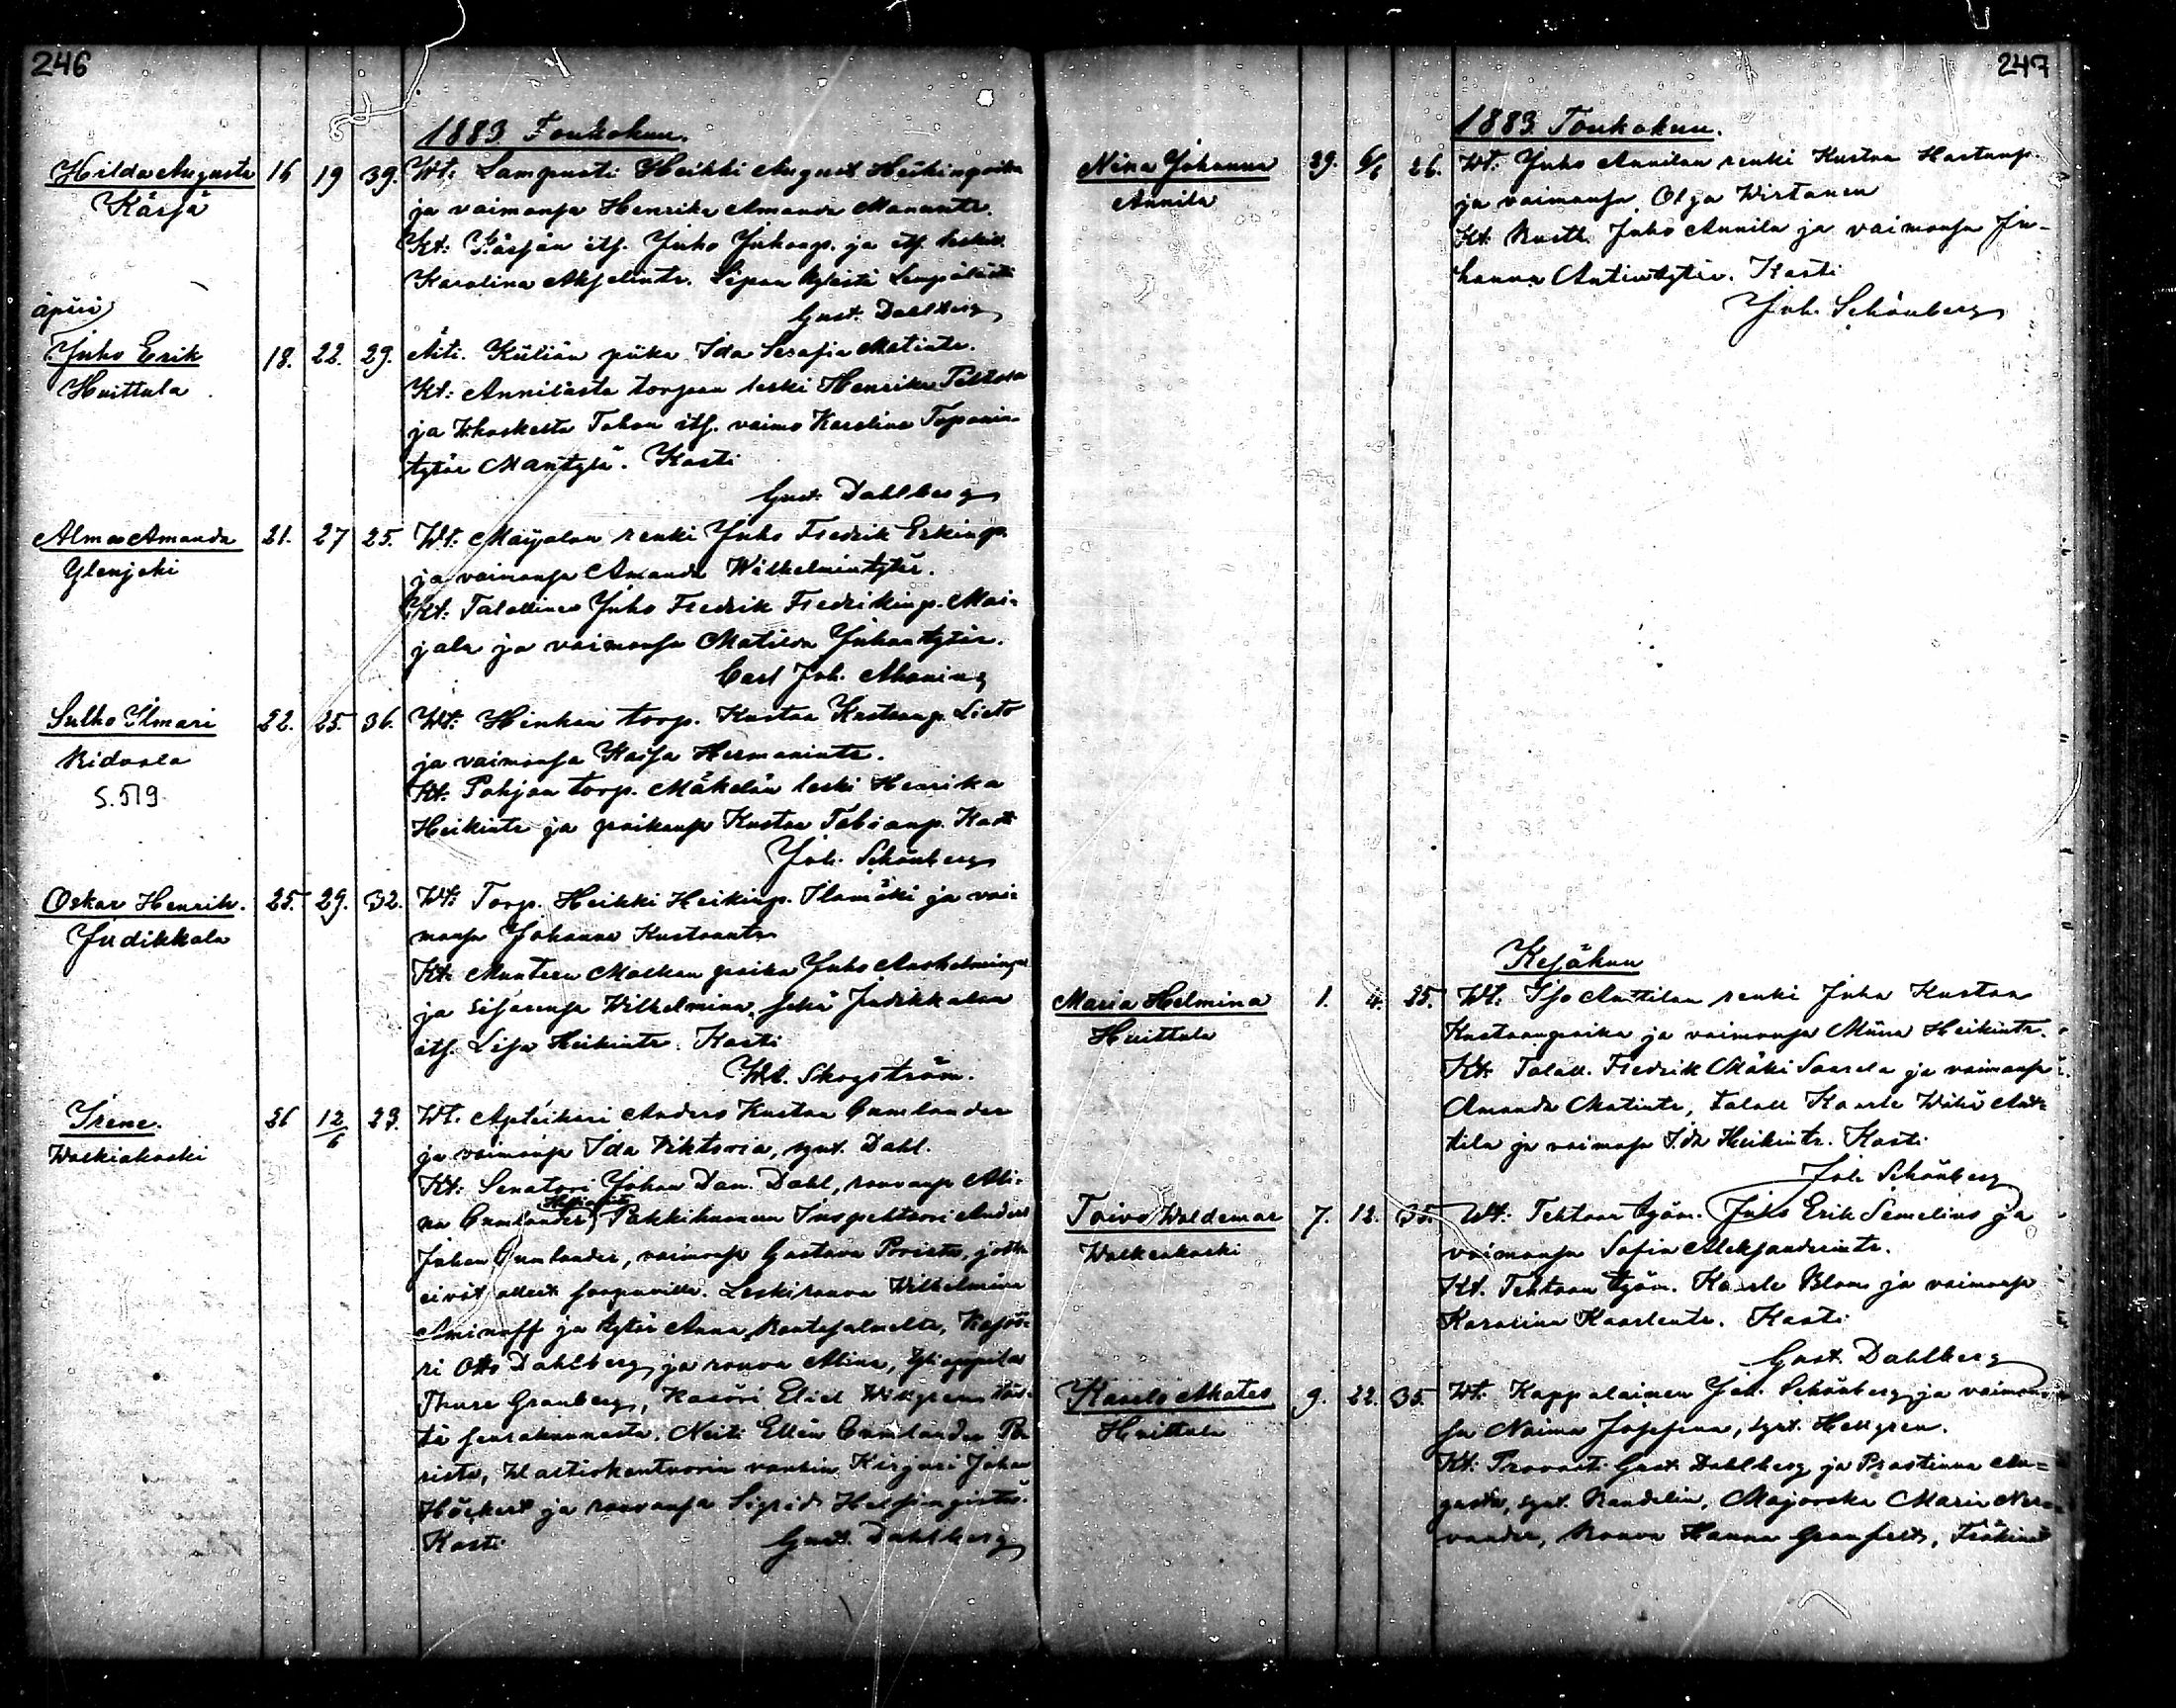 246
1883 Toukokuu.
Hilda Augusta 16 19 39. Wt: Lampuoti Heikki August Heikinpoika
Kärjä ja vaimonsa Henrika Amanda Manuntr.
Kt: Kärjän its. Juho Juhonp. ja its. leski
Karolina Akselintr.
äpärä Gust. Dahlberg
Juho Erik 18. 22. 29. Äiti. piika Ida Serafia Matintr.
Huittula Kt: Annilasta torpan leski Henrika
ja its. vaimo Karolina Tapanin-
tytär Mäntylä. Kasti
Gust. Dahlberg
Alma Amanda 21. 27 25. Wt: Maijalan renki Juho Fredrik Erkinp.
Ylenjoki ja vaimonsa Amanda Wilhelmintytär.
Kt: Talollinen Juho Fredrik Fredrikinp. Mai-
jala ja vaimonsa Matilda Juhontytär.
Carl Joh.
Sulho Ilmari 22. 25. 36. Wt: torp. Kustaa Kustaanp. Lieto
Ridvala ja vaimonsa Kaisa Hermanintr.
S. 519. Kt: Pohjan torp. Mäkelän leski Henrika
Heikintr ja poikansa Kustaa Kasti
Joh. Schönberg
Oskar Henrik. 25. 29. 32. Wt: Torp. Heikki Heikinp. Ilomäki ja vai-
Judikkala monsa Johanna Kustaantr.
Kt: poika Juho
ja sisarensa Wilhelmina, sekä Judikkalan
its. Lisa Heikintr. Kasti
Wt. Skogström.
Irene. 26 12/6 23. Wt. Apteikari Anders Kustaa Cumlander
Walkiakoski ja vaimonsa Ida Viktoria, synt. Dahl.
Kt: Senatori Johan Dan. Dahl, rouvansa Ali-
na Cumlander, Pakkihuoneen Inspehtori Anders
Johan Cumlander, vaimonsa Gustava Porista, jotka
eivät olleet saapuvilla. Leskirouva Wilhelmina
Aminoff ja tytär Anna, Rantasalmelta,
ri Otto Dahlberg ja rouva Alina,
Thure Granberg, Eliel Wikgren täs-
tä seurakunnasta. Neiti Ellen Cumlander Po-
rista, Waltiokonttorin vanhin Kirjuri Johan
Höckert ja rouvansa Sigrid Helsingistä.
Kasti Gust. Dahlberg
247
1883 Toukokuu.
Nina Johanna 29. 6/6 26. Wt. Juho Annilan renki Kustaa Kustaanp.
Annila ja vaimonsa Olga Wirtanen
Kt. Rustt. Juho Annila ja vaimonsa Jo-
hanna Antintytär. Kasti
Joh. Schönberg
Kesäkuu
Maria Helmina 1. 4. 25. Wt: Iso Anttilan renki Juha Kustaa
Huittula Kustaanpoika ja vaimonsa Miina Heikintr.
Kt: Taloll. Fredrik Mäki Saarela ja vaimonsa
Amanda Matintr, taloll Kaarle Wähä Ant-
tila ja vaimonsa Ida Heikintr. Kasti
Joh. Schönberg
Toivo Waldemar 7. 12. 35. Wt: Tehtaan työm. Juho Erik Semelius ja
Walkeakoski vaimonsa Sofia Aleksanderintr.
Kt. Tehtaan työm. Kaarle Blom ja vaimonsa
Karolina Kaarlentr. Kasti
Gust. Dahlberg
Kaarlo Mateo 9. 22. 35. Wt: Kappalainen Joh. Schönberg ja vaimon-
Huittula sa Naima Josefina, synt. Hellgren.
Kt: Provasti Gust. Dahlberg ja Prostinna Au-
gusta, synt. Randelin, Majorska Maria Ner-
vander, Rouva Hanna Granfelt, Fröökinät